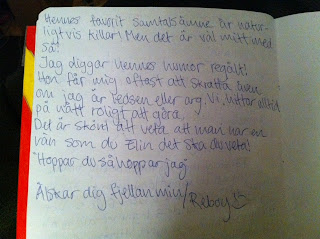 Hennes favorit samtalsämne är natur-
ligtvis killar! Men det är väl mitt med
så!
Jag diggar hennes humor regält!
Hon får mig oftast att skratta även
om jag är ledsen eller arg. Vi hittar alltid
på nått roligt att göra.
Det är skönt att veta att man har en
vän som du Elin det ska du veta!
"Hoppar du så hoppar jag"
Älskar dig fjellan min/Reboy